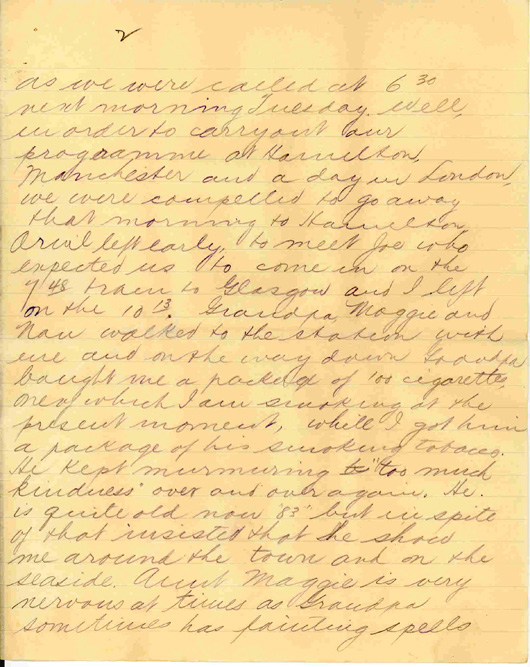 2
as we were called at 6 30
next morning Tuesday. Well,
in order to carry out our
programme at Hamilton,
Manchester and a day in London,
we were compelled to go away
that morning to Hamilton
Orwil left early, to meet Joe who
expected us to come in on the
7 48 train to Glasgow and I left
on the 10 13. Grandpa Maggie and
Nan walked to the station with
me and on the way down Grandpa
bought me a packed of 100 cigarettes,
one which I am smoking at the
present moment, while I got him
a package of his smoking tobacco.
He kept murmuring to "too much
kindness" over and over again. He
is quite old now "83" but in spite
of that insisted that he show
me around the town and on the
seaside. Aunt Maggie is very
nervous at times as Grandpa
sometimes has fainting spells